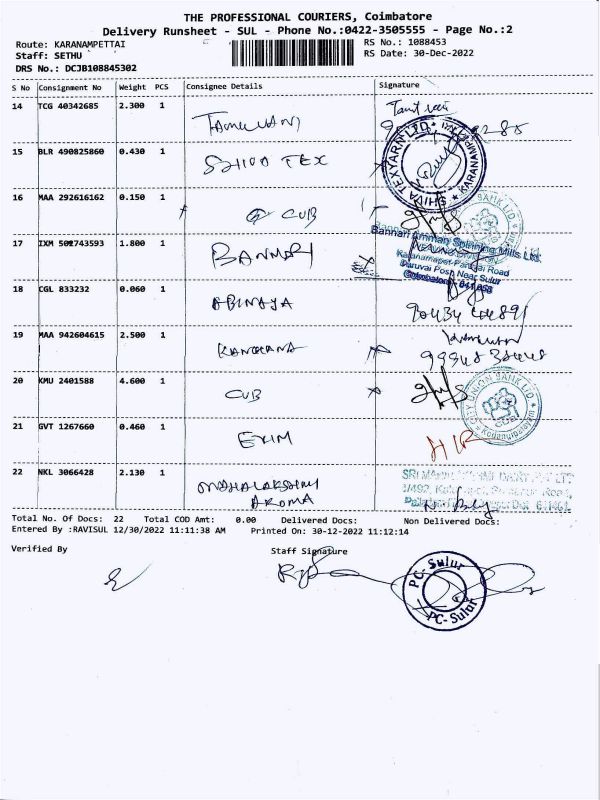 THE PROFESSIONAL COURIERS, Coimbatore
Delivery Runsheet - SUL - Phone No.:0422-3505555 - Page No.:2
Route: KARANAMPETTAI
RS No.: 1088453
Staff: SETHU
RS Date: 30-Dec-2022
DRS No.: DCJB108845302
S No Consignment No Weight PCS Consignee Details Signature
14 TCG 40342685 2.300 1
15 BLR 490825860 0.430 1 SHIVA TEX
SHIVA TEXYARN LTD. KARANAMPET
16 MAA 292616162 0.150 1 CUB
17 IXM 502743593 1.800 1 BANNARI
Bannari Amman Spinning Mills Ltd.
WEAVING DIVISION
Road
Paruvai Post, Near Sulur
Coimbatore - 641 658
18 CGL 833232 0.060 1 ABINAYA
19 MAA 942604615 2.500 1
20 KMU 2401588 4.600 1 CUB
CITY UNION BANK LTD.
CUB
21 GVT 1267660 0.460 1 EXIM
22 NKL 3066428 2.130 1 MAHALAKSHMI
AROMA
Total No. Of Docs: 22 Total COD Amt: 0.00 Delivered Docs: Non Delivered Docs:
Entered By :RAVISUL 12/30/2022 11:11:38 AM Printed On: 30-12-2022 11:12:14
Verified By Staff Signature
PC-Sulur
PC-Sulur